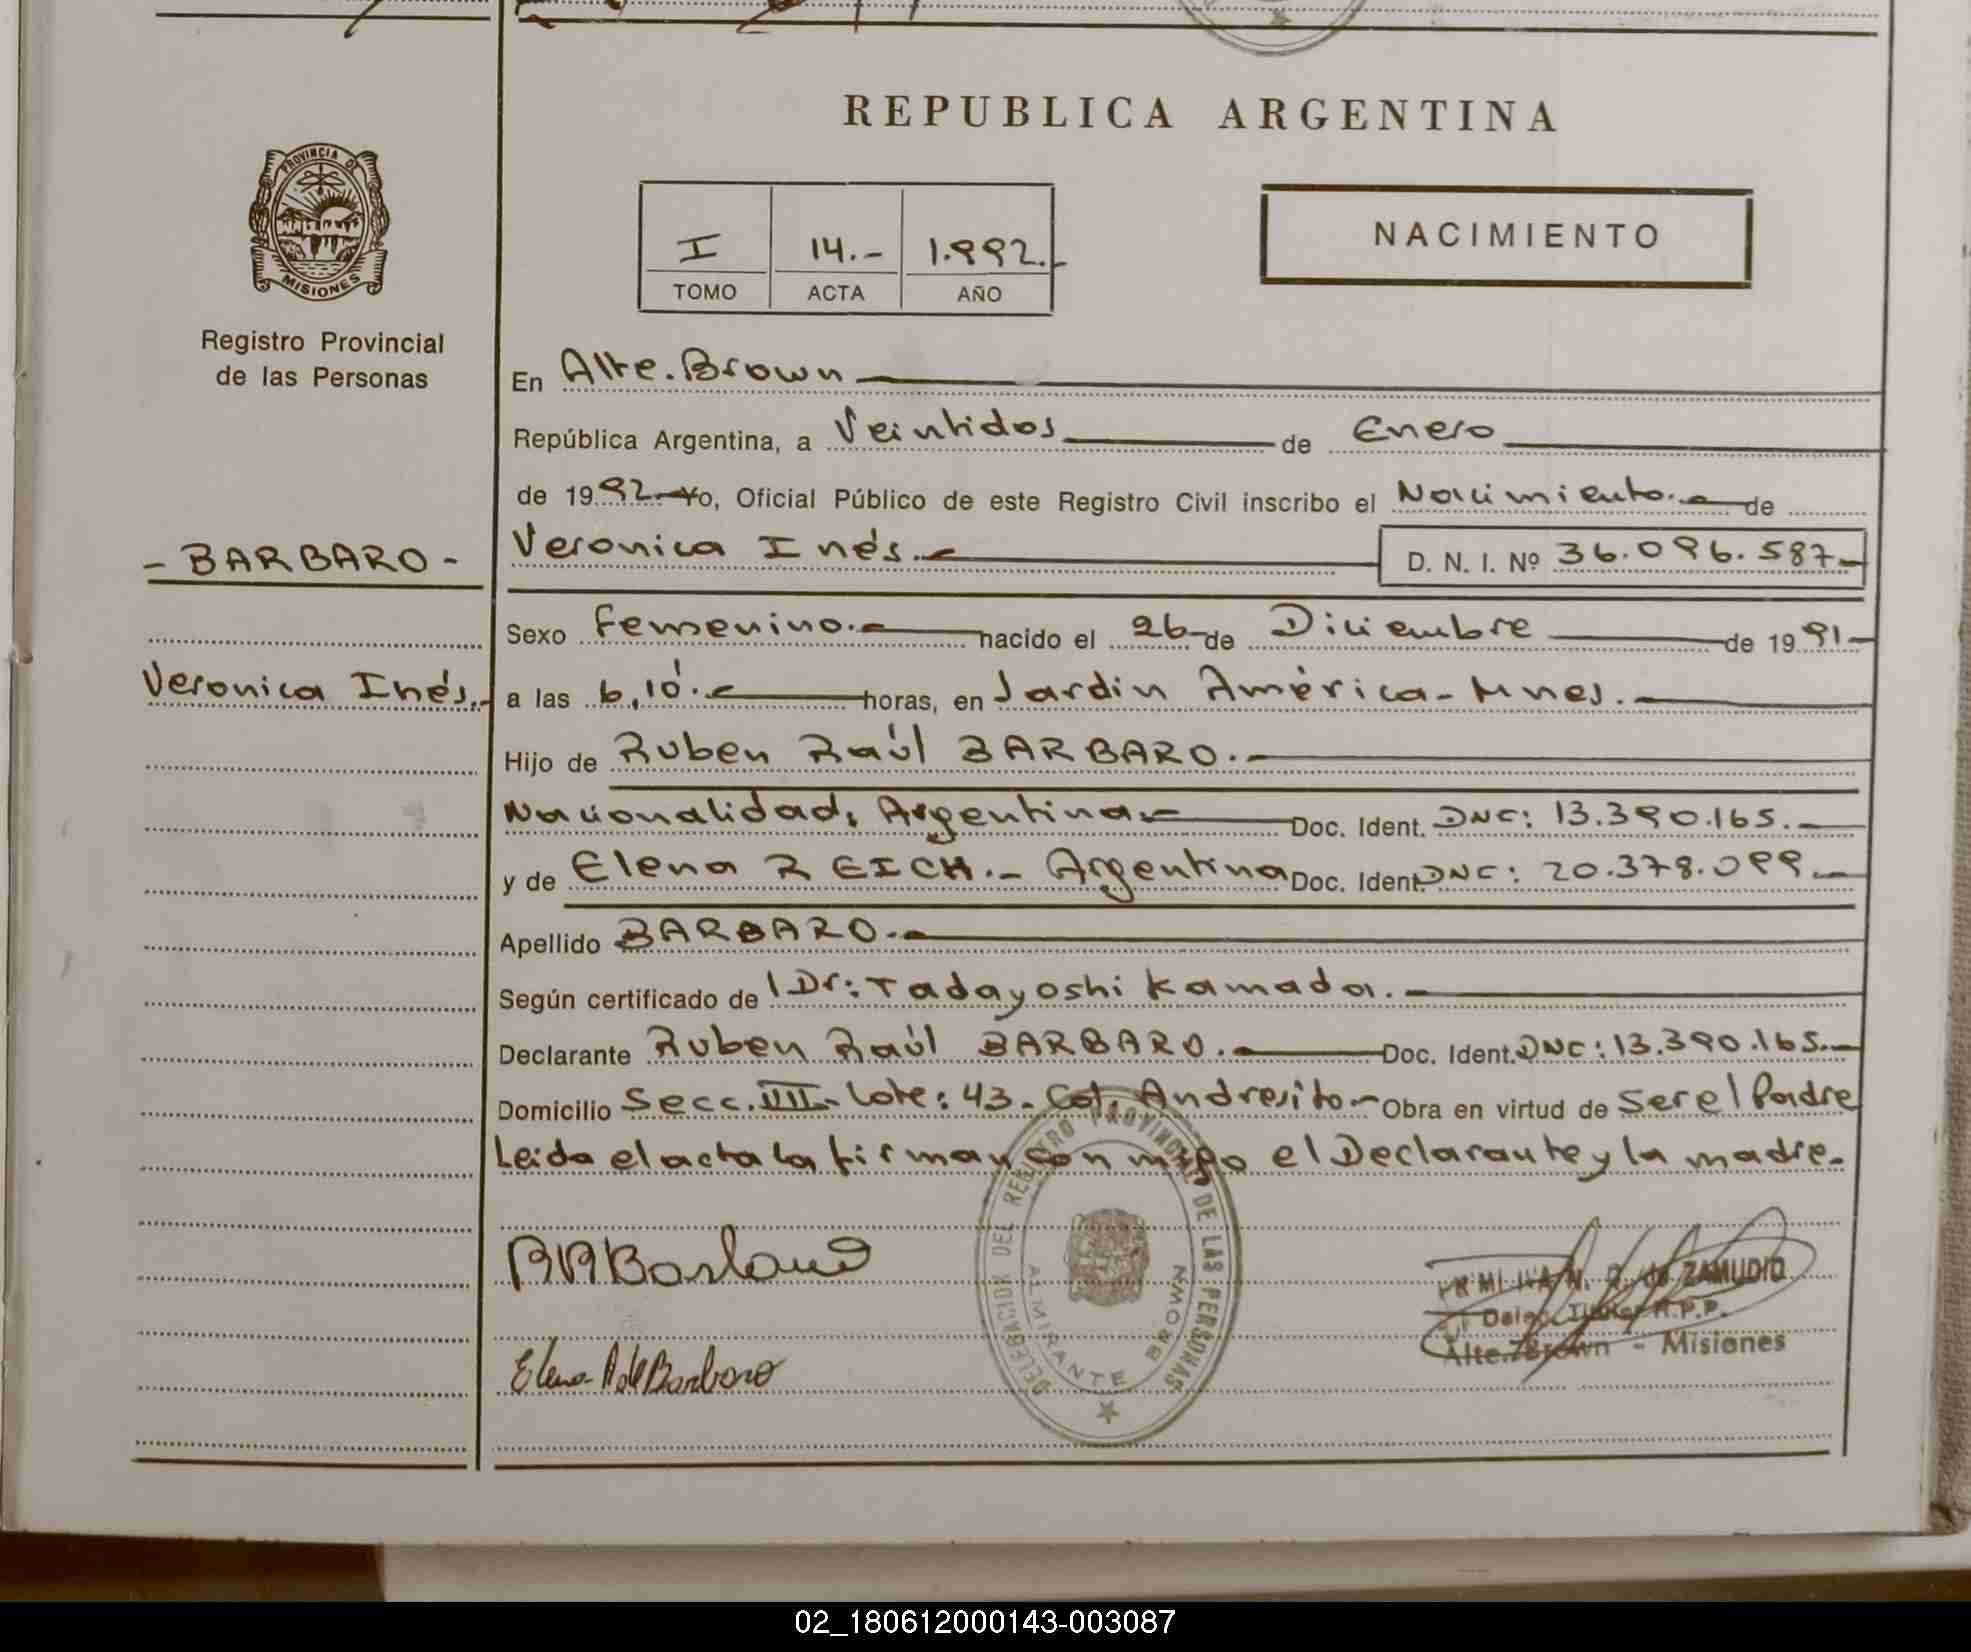 REPUBLICA ARGENTINA
PROVINCIA DE
MISIONES
Registro Provincial
de las Personas
I 14.- 1.992.-
TOMO ACTA AÑO
NACIMIENTO
En Alte. Brown
República Argentina, a Veintidos de Enero
de 1992 Yo, Oficial Público de este Registro Civil inscribo el Nacimiento.- de
- BARBARO -
Veronica Inés.- D. N. I. Nº 36.096.587-
Sexo Femenino.- nacido el 26 de Diciembre de 1991-
Veronica Inés.-
a las 6,10.- horas, en Jardin América - Mnes.-
Hijo de Ruben Raúl BARBARO.-
Nacionalidad: Argentina- Doc. Ident. DNC: 13.390.165.-
y de Elena REICH.- Argentina Doc. Ident. DNC: 20.378.099.-
Apellido BARBARO.-
Según certificado de Dr: Tadayoshi Kamada.-
Declarante Ruben Raúl BARBARO.- Doc. Ident. DNC: 13.390.165.-
Domicilio Secc. VII- Lote: 43- Col. Andresito- Obra en virtud de Ser el Padre
Leida el acta la firman con migo el Declarante y la madre.
DELEGACION DEL REGISTRO PROVINCIAL DE LAS PERSONAS
ALMIRANTE BROWN
ZAMUDIO
Deleg. Titular R.P.P.
Alte. Brown - Misiones
Elena de Barbaro
02_180612000143-003087